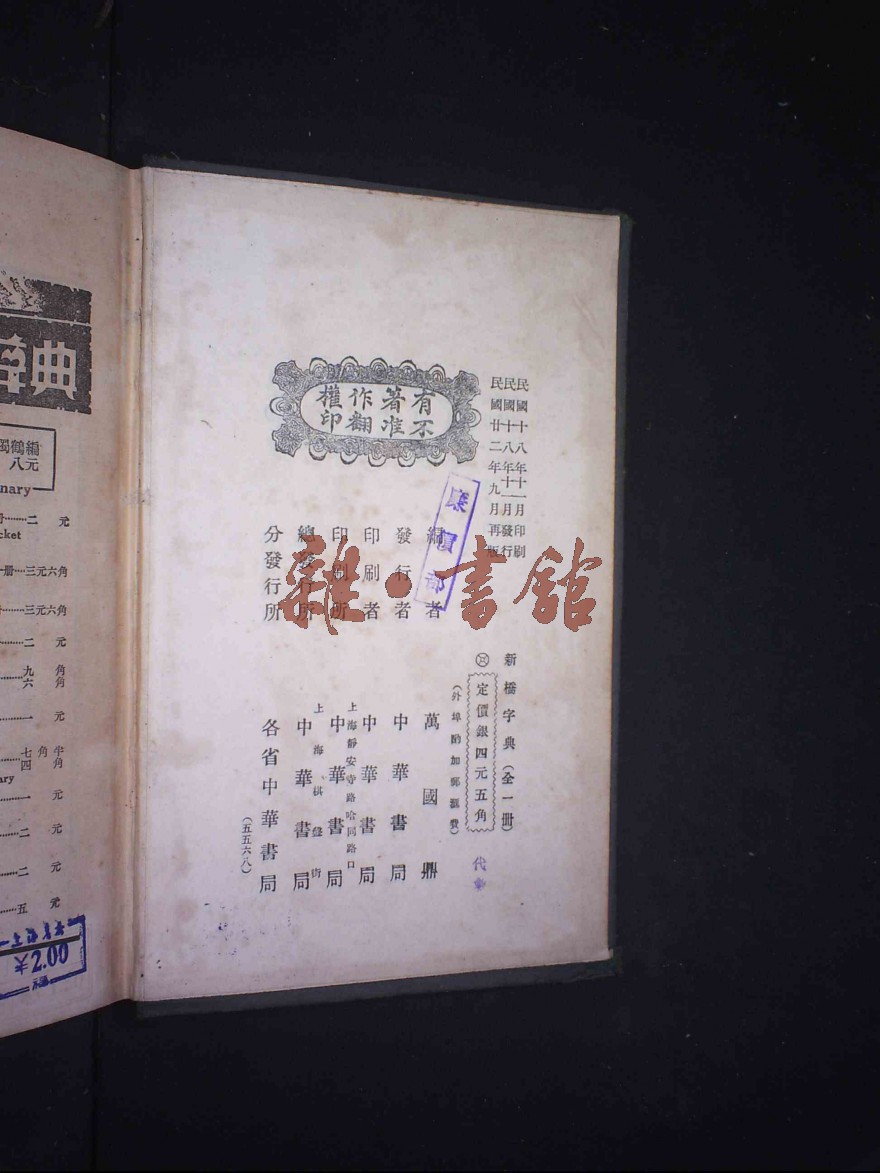 民國十八年十一月印刷
民國十八年十一月發行
民國廿二年九月再版
有著作權
不准翻印
新橋字典（全一冊）
定價銀四元五角
（外埠酌加郵滙費）
編者 萬國鼎
發行者 中華書局
印刷者 中華書局
上海靜安寺路哈同路口
印刷所 中華書局
上海棋盤街
總發行所 中華書局
分發行所 各省中華書局
（五五六八）
廉價部
代
雜·書館
典
編
八元
nary
二元
cket
冊……三元六角
三元六角
二元
九角
六角
一元
七角半
四角
ary
一元
二元
二元
五元
2.00